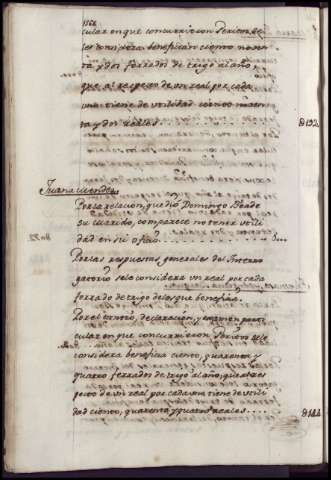 cular en que concurrieron Peritos, se
les considera benefician ciento noven-
ta y dos ferrados de trigo al año
que al respecto de un real por cada
uno tiene de utilidad ciento noven-
ta y dos reales 192
Juana Mendez
Por la relacion, que dió Domingo
su marido, comparece no tener utili-
dad en su oficio
Por las respuestas generales del Interro-
gatorio se le considera un real por cada
ferrado de trigo de los que beneficia.
Por el tanteo, declaracion, y examen parti-
cular en que concurrieron Peritos se le
considera beneficia ciento, quarenta y
quatro ferrados de trigo al año, que al res-
pecto de un real por cada uno tiene de utili-
dad ciento, quarenta y quatro reales 144